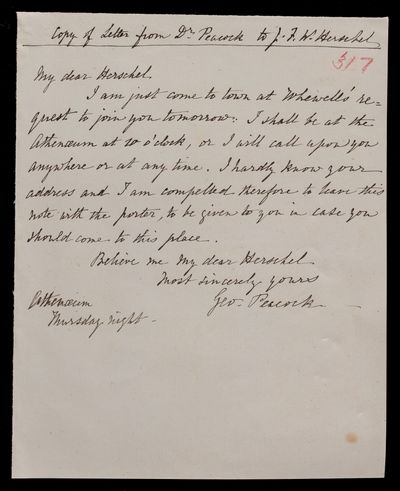 Copy of Letter from Dr. Peacock to J. F. W. Herschel
317
My dear Herschel.
I am just come to town at Whewell's re=
quest to join you tomorrow: I shall be at the
Athenæum at 10 o'clock, or I will call upon you
anywhere or at any time. I hardly know your
address and I am compelled therefore to leave this
note with the porter, to be given to you in case you
should come to this place.
Believe me My dear Herschel
Most sincerely yours
Geo. Peacock
Athenæum
Thursday night